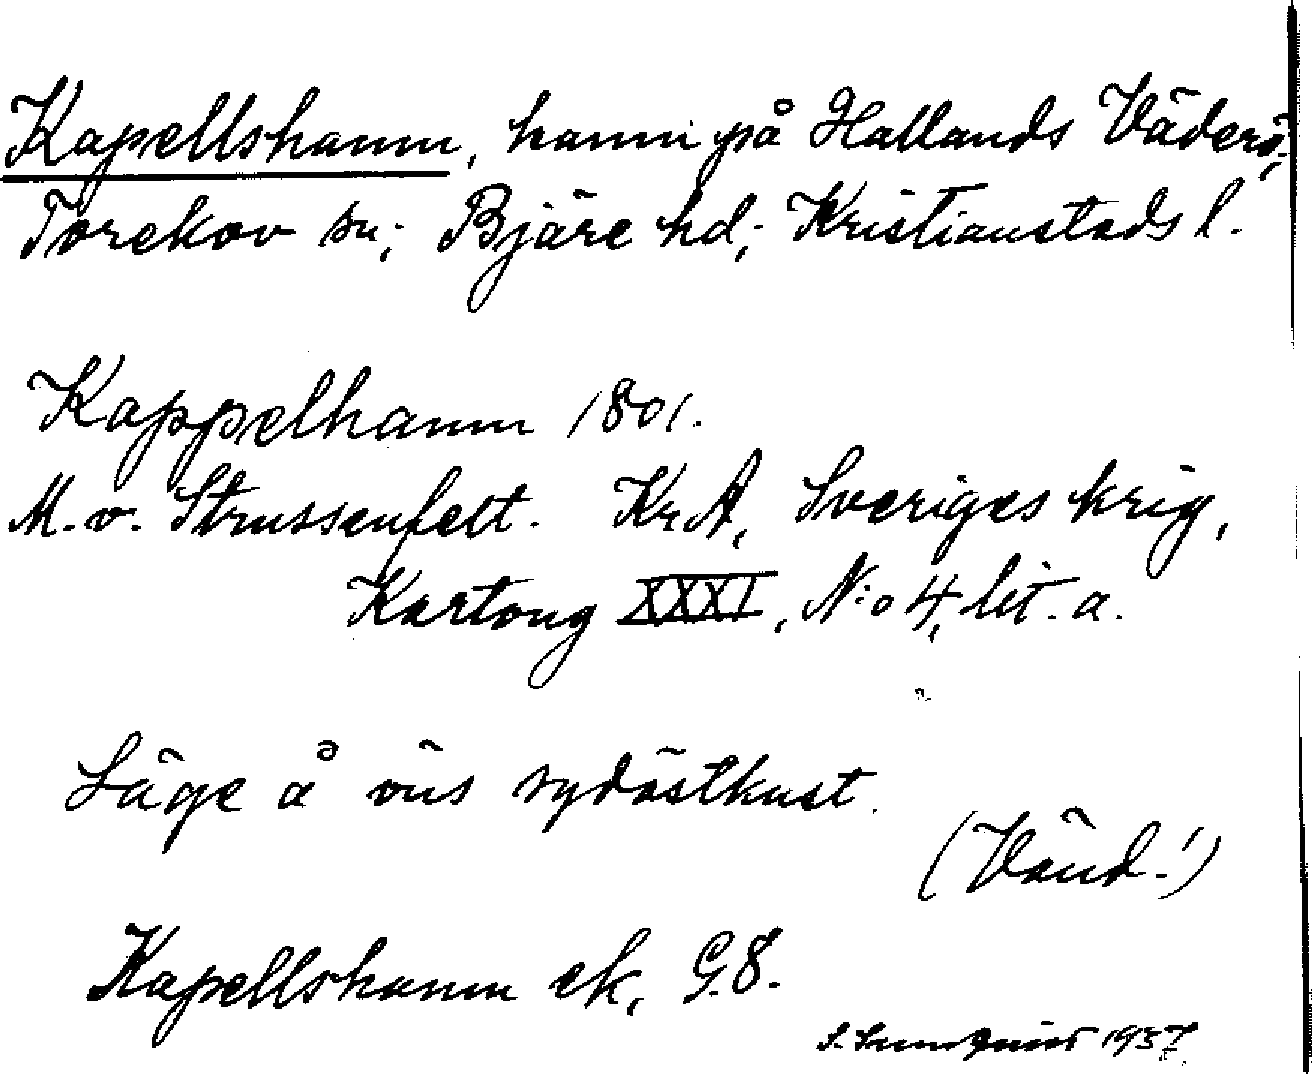 Kapellshamn, hamn på Hallands Väderö,
Torekov sn; Bjäre hd; Kristianstads l.
Kappelhamn 1801.
M. v. Strussenfelt. KrA, Sveriges krig,
Kartong XXXI, N:o 4, lit. a.
Läge å öns sydöstkust.
(Vänd!)
Kapellshamn ek, G.8.
1937